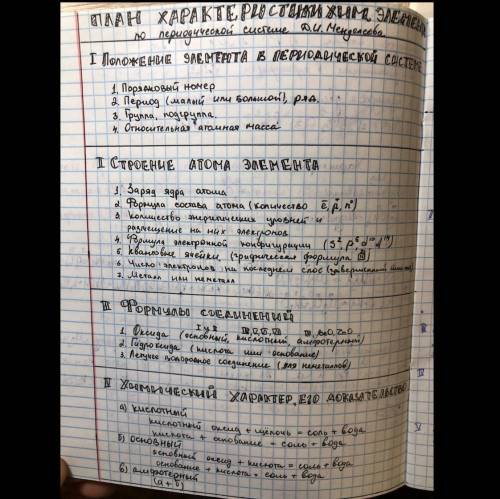 ПЛАН ХАРАКТЕРИСТИКИ ХИМ. ЭЛЕМЕН
по периодической системе Д.И. Менделеева
I ПОЛОЖЕНИЕ ЭЛЕМЕНТА В ПЕРИОДИЧЕСКОЙ СИСТЕМЕ
1. Порядковый номер
2. Период (малый или большой), ряд.
3. Группа, подгруппа.
4. Относительная атомная масса
II СТРОЕНИЕ АТОМА ЭЛЕМЕНТА
1. Заряд ядра атома
2. Формула состава атома (количество ē, p, n°)
3. Количество энергетических уровней и
размещение на них электронов
4. Формула электронной конфигурации (s² p⁶ d¹⁰ f¹⁴)
5. Квантовые ячейки (графическая формула)
6. Число электронов на последнем слое (завершенный
7. Металл или неметалл
III ФОРМУЛЫ СОЕДИНЕНИЙ
I и II
1. Оксида (основный, кислотный, амфотерный)
2. Гидроксида (кислота или основание)
3. Летучее водородное соединение (для неметаллов)
IV ХИМИЧЕСКИЙ ХАРАКТЕР, ЕГО ДОКАЗАТЕЛЬСТВО
а) кислотный
кислотный оксид + щелочь = соль + вода
кислота + основание = соль + вода
б) основный
основный оксид + кислота = соль + вода
основание + кислота = соль + вода
в) амфотерный
(а + б)